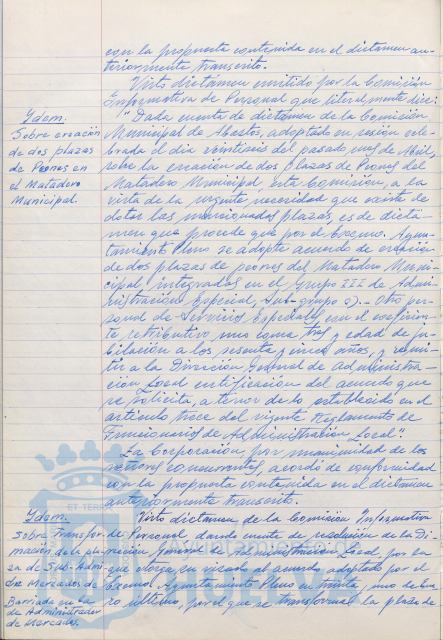 con la propuesta contenida en el dictamen an-
teriormente transcrito.
Visto dictámen emitido por la Comisión
Informativa de Personal que literalmente dice:
Idem.
Sobre creación
de dos plazas
de Peones en
el Matadero
Municipal.
"Dada cuenta de dictamen de la Comisión
Municipal de Abastos, adoptado en sesión cele-
brada el día veintiseis del pasado mes de Abril,
sobre la creación de dos plazas de Peones del
Matadero Municipal, esta Comisión, a la
vista de la urgente necesidad que existe de
dotar las mencionadas plazas, es de dictá-
men que procede que por el Excmo. Ayun-
tamiento Pleno se adopte acuerdo de creación
de dos plazas de peones del Matadero Muni-
cipal, integradas en el Grupo III de Admi-
nistración Especial, Sub-grupo Otro per-
sonal de Servicios Especiales, con el coeficien-
te retributivo uno coma tres y edad de ju-
bilación a los sesenta y cinco años, y remi-
tir a la Dirección General de Administra-
ción Local certificación del acuerdo que
se solicita, a tenor de lo establecido en el
artículo trece del vigente Reglamento de
Funcionarios de Administración Local".
La Corporación, por unanimidad de los
señores concurrentes, acordó de conformidad
con la propuesta contenida en el dictámen
anteriormente transcrito.
Idem.
Sobre Transfor-
mación de la pla-
za de Sub-Admi-
dor Mercados de
Barriada en la
de Administrador
de Mercados.
Visto dictamen de la Comisión Informativa
de Personal, dando cuenta de resolución de la Di-
rección General de Administración Local, por la
que otorga, en visado al acuerdo adoptado por el
Excmo. Ayuntamiento Pleno en treinta y uno de Ene-
ro último, por el que se transforma la plaza de